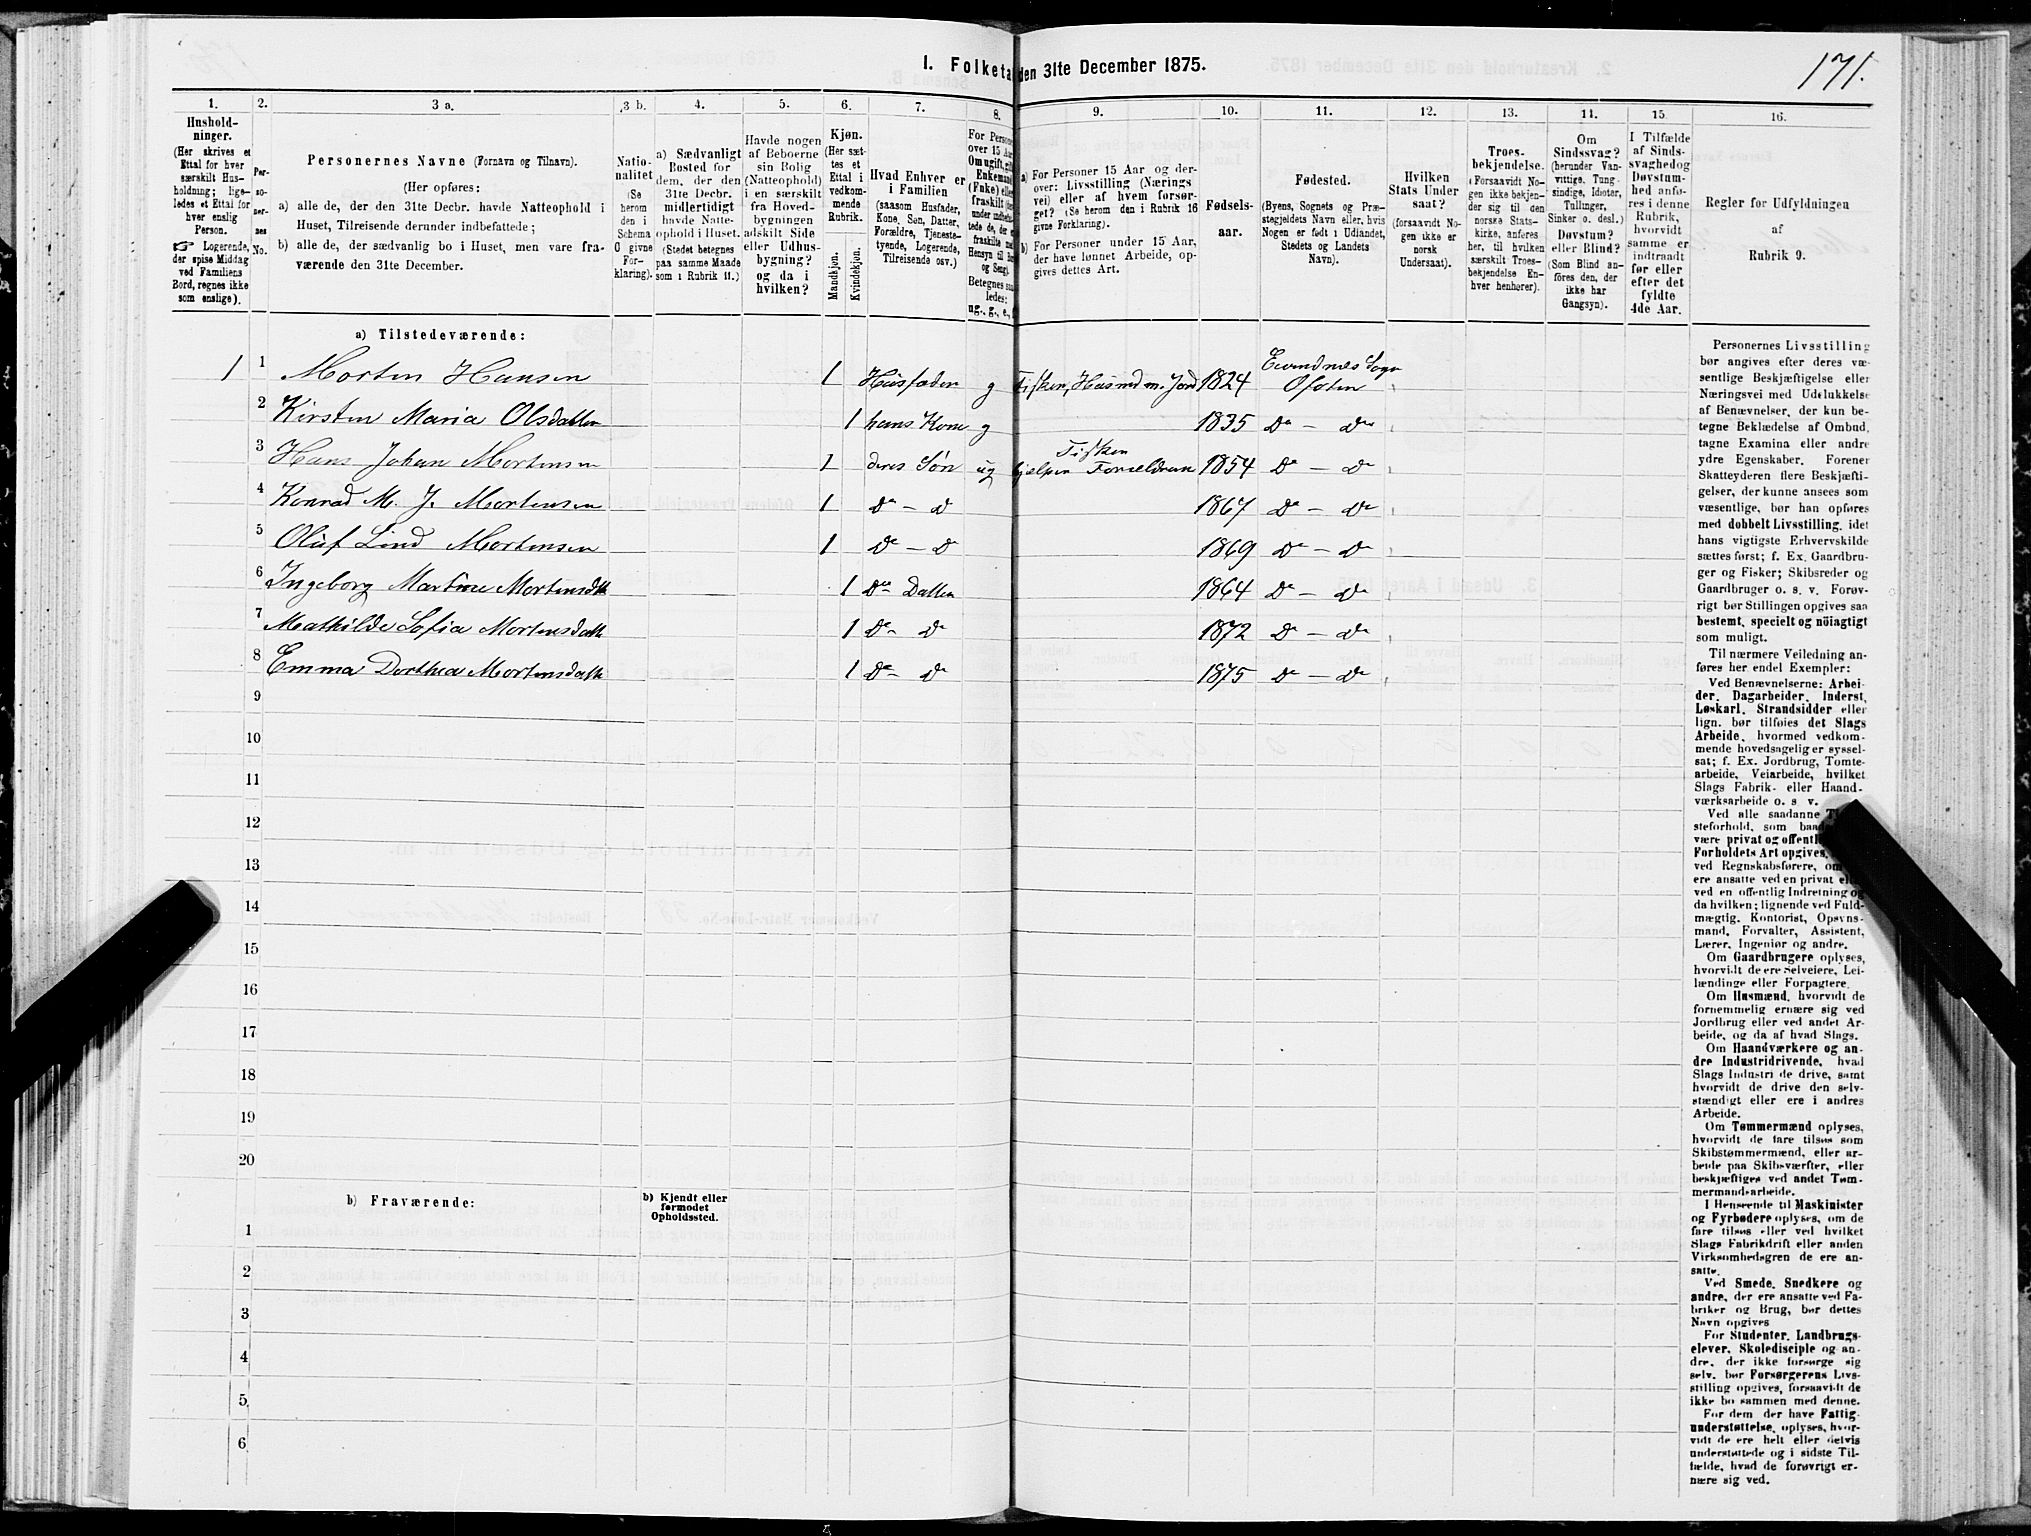 171.
I. Folketa den 31te December 1875.
1. 2. 3 a. 3 b. 4. 5. 6. 7. 8. 9. 10. 11. 12. 13. 14. 15. 16.
Hushold-
ninger.
(Her skrives et
Ettal for hver
særskilt Hus-
holdning; lige-
ledes et Ettal for
hver enslig
Person.
☞ Logerende,
der spise Middag
ved Familiens
Bord, regnes ikke
som enslige).
Per-
so-
ner-
ses
No.
Personernes Navne (Fornavn og Tilnavn).
(Her opføres:
a) alle de, der den 31te Decbr. havde Natteophold i
Huset, Tilreisende derunder indbefattede;
b) alle de, der sædvanlig bo i Huset, men vare fra-
værende den 31te December.
Natio-
nalitet
(Se
herom
den i
Schema
O givne
For-
klaring).
a) Sædvanligt
Bosted for
dem, der den
31te Decbr.
midlertidigt
havde Natte-
ophold i Huset.
(Stedet betegnes
paa samme Maade
som i Rubrik 11.)
Havde nogen
af Beboerne
sin Bolig
(Natteophold)
i en særskilt
fra Hoved-
bygningen
adskilt Side
eller Udhus-
bygning?
og da i
hvilken?
Kjøn.
(Her sæt-
tes et
Ettal i
vedkom-
mende
Rubrik.
Mandkjøn.
Kvindekjøn.
Hvad Enhver er
i Familien
(saasom Husfader,
Kone, Søn, Datter,
Forældre, Tjeneste-
tyende, Logerende,
Tilreisende osv.)
For Persone
over 15 Aar
Om ugift, gift
Enkemand
(Enke) elle
fraskilt
under indbefat-
tede de, der e
fraskilte med
Hensyn til bo
og Seng).
Betegnes saa
ledes:
ug., g., e., f.
a) For Personer 15 Aar og der-
over: Livsstilling (Nærings
vei) eller af hvem forsør-
get? (Se herom den i Rubrik 16
givne Forklaring).
b) For Personer under 15 Aar,
der have lønnet Arbeide, op-
gives dettes Art.
Fødsels-
aar.
Fødested.
(Byens, Sognets og Præ-
stegjeldets Navn eller, hvis
Nogen er født i Udlandet,
Stedets og Landets
Navn).
Hvilken
Stats Under
saat?
(forsaavidt No-
gen ikke er
norsk
Undersaat).
Troes-
bekjendelse.
(Forsaavidt No-
gen ikke bekjen-
der sig til den
norske Stats-
kirke, anføres
her, til hvilken
særskilt Troes-
bekjendelse En-
hver henhører).
Om
Sindssvag?
(herunder Van-
vittige, Tung-
sindige, Idioter,
Tullinger,
Sinker o. desl.)
Døvstum?
eller Blind?
(Som Blind an-
føres den, der
ikke har
Gangsyn).
I Tilfælde
af Sinds-
svaghed og
Døvstum-
hed anfø-
res i denne
Rubrik,
hvorvidt
samme er
indtraadt
før eller
efter det
fyldte
4de Aar.
Regler for Udfyldningen
af
Rubrik 9.
a) Tilstedeværende:
1 1 Morten Hansen 1 Husfader g Fisker, Husmd m. Jord 1824 Evendnæs Sogn Ofoten
2 Kirsten Maria Olsdatter 1 hans Kone g 1835 Do — Do
3 Hans Johan Mortensen 1 deres Søn ug Fisker hjelper Forældrene 1854 Do — Do
4 Konrad M. J. Mortensen 1 Do — Do 1867 Do — Do
5 Oluf Lind Mortensen 1 Do — Do 1869 Do — Do
6 Ingeborg Martine Mortensdtr 1 Do Datter 1864 Do — Do
7 Mathilde Sofia Mortensdattr 1 Do — Do 1872 Do — Do
8 Emma Dorthea Mortensdattr 1 Do — Do 1875 Do — Do
9
10
11
12
13
14
15
16
17
18
19
20
b) Fraværende:
b) Kjendt eller
formodet
Opholdssted.
1
2
3
4
5
6
Personernes Livsstilling
bør angives efter deres væ-
sentlige Beskjæftigelse eller
Næringsvei med Udelukkelse
af Benævnelser, der kun be-
tegne Beklædelse af Ombud,
tagne Examina eller andre
ydre Egenskaber. Forener
Skatteyderen flere Beskjæfti-
gelser, der kunne ansees som
væsentlige, bør han opføres
med dobbelt Livsstilling, idet
hans vigtigste Erhvervskilde
sættes først; f. Ex. Gaardbru-
ger og Fisker; Skibsreder og
Gaardbruger o. s. v. Forøv-
rigt bør Stillingen opgives saa
bestemt, specielt og nöiagtigt
som muligt.
Til nærmere Veiledning an-
føres her endel Exempler:
Ved Benævnelserne: Arbei-
der, Dagarbeider, Inderst,
Løskarl, Strandsidder eller
lign. bør tilføies det Slags
Arbeide, hvormed vedkom-
mende hovedsagelig er syssel-
sat; f. Ex. Jordbrug, Tomte-
arbeide, Veiarbeide, hvilket
Slags Fabrik- eller Haand-
værksarbeide o. s v.
Ved alle saadanne
steforhold, som
være privat og offentl
Forholdets Art opgives,
ved Regnskabsførere, om
ere ansatte ved en privat
ved en offentlig Indretning og
da hvilken; lignende ved Fuld-
mægtig, Kontorist, Opsyns-
mand, Forvalter, Assistent,
Lærer, Ingeniør og andre.
Om Gaardbrugere oplyses,
hvorvidt de ere Selveiere, Lei-
lændinge eller Forpagtere.
Om Husmænd, hvorvidt de
fornemmelig ernære sig ved
Jordbrug eller ved andet Ar-
beide, og da af hvad Slags.
Om Haandværkere og an-
dre Industridrivende, hvad
Slags Industri de drive, samt
hvorvidt de drive den selv-
stændigt eller ere i andres
Arbeide.
Om Tømmermænd oplyses,
hvorvidt de fare tilsøs som
Skibstømmermænd, eller ar-
beide paa Skibsværfter, eller
beskjæftiges ved andet Tøm-
mermandsarbeide.
I Henseende til Maskinister
og Fyrbødere oplyses, om de
fare tilsøs eller ved hvilket
Slags Fabrikdrift eller anden
Virksomhedsgren de ere an-
satte.
Ved Smede, Snedkere og
andre, der ere ansatte ved Fa-
briker og Brug, bør dettes
Navn opgives
For Studenter, Landbrugs-
elever, Skoledisciple og an-
dre, der ikke forsørge sig
selv, bør Forsørgerens Livs-
stilling opgives, forsaavidt de
ikke bo sammen med denne.
For dem, der have Fattig-
understøttelse, oplyses, hvor-
vidt de ere helt eller delvis
understøttede og i sidste Til-
fælde, hvad de forøvrigt er-
nære sig ved.